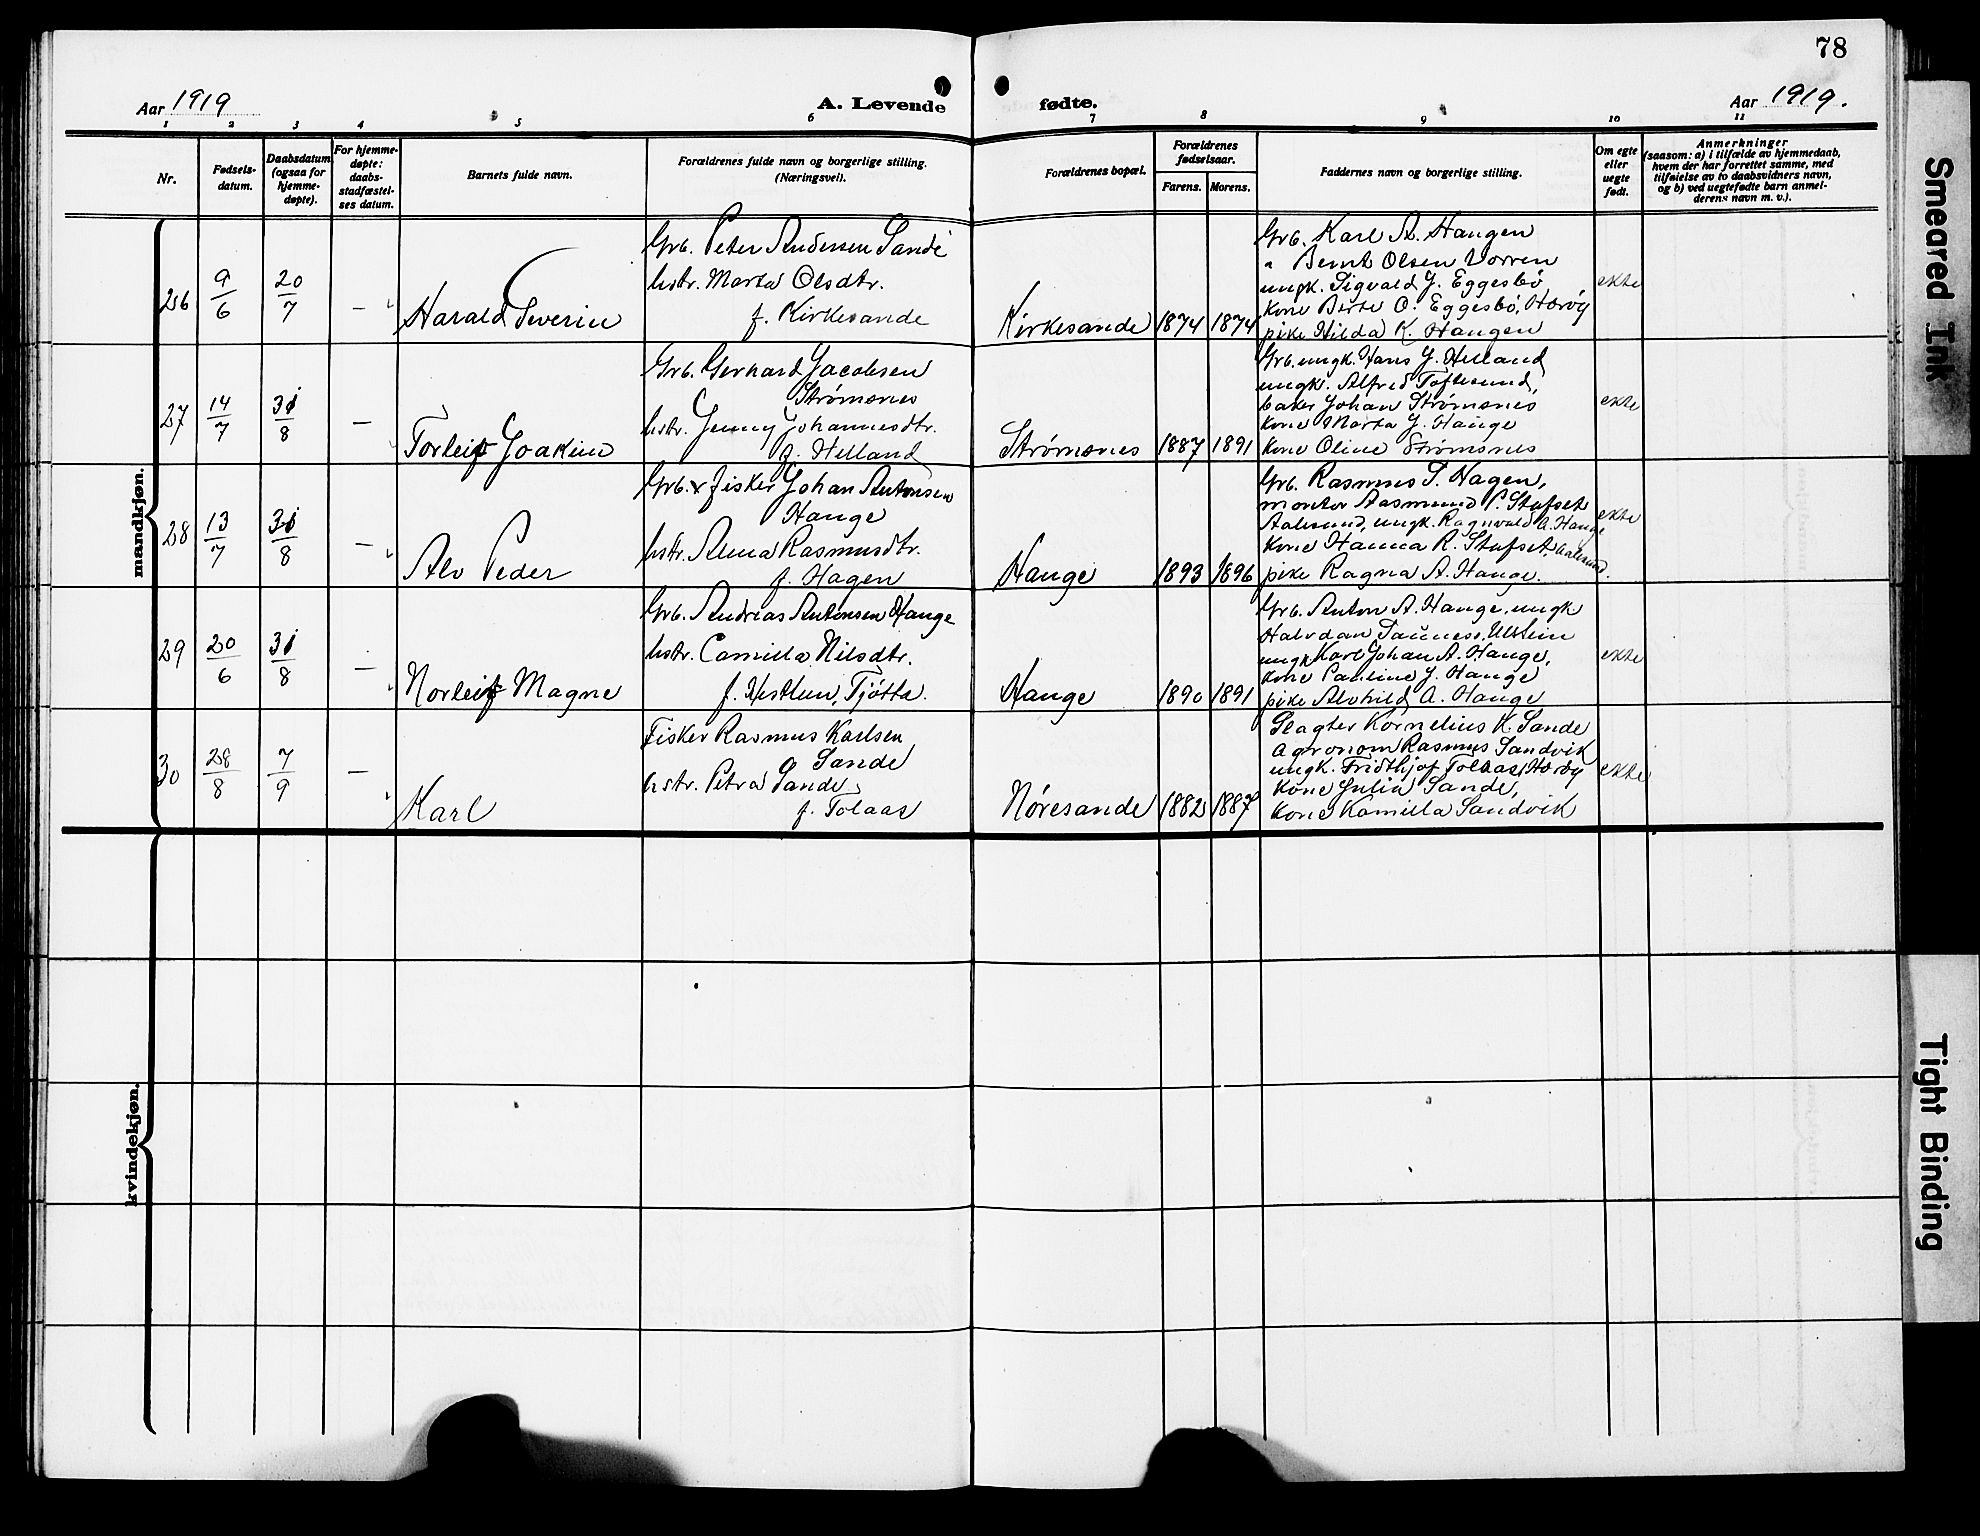 78
Aar 1919
A. Levende
fødte.
Aar 1919.
1 2 3 4 5 6 7 8 9 10 11
Nr.
Fødsels-
datum.
Daabsdatum
(ogsaa for
hjemme-
døpte).
For hjemme-
døpte:
daabs-
stadfæstel-
ses datum.
Barnets fulde navn.
Forældrenes fulde navn og borgerlige stilling.
(Næringsvei).
Forældrenes bopæl.
Forældrenes
fødselsaar.
Farens. Morens.
Faddernes navn og borgerlige stilling.
Om egte
eller
uegte
født.
Anmerkninger
(saasom: a) i tilfælde av hjemmedaab,
hvem der har forrettet samme, med
tilføielse av to daabsvidners navn,
og b) ved uegtefødte barn anmel-
derens navn m. v.).
mandkjøn.
26
9/6
20/7
—
Harald Severin
Grb. Peter Andersen Sande
hstr. Marta Olsdtr.
f. Kirkesande
Kirkesande
1874 1874
Grb. Karl A. Haugen
" Bernt Olsen Vorren
ungk. Sigvald J. Eggesbö
kone Berte O. Eggesbö, Heröy
pike Hilda K. Haugen
ekte
27
14/7
31/8
—
Torleif Joakim
Grb. Gerhard Jacobsen
Strømsnes
hstr. Jenny Johannesdtr.
f. Helland
Strømsnes
1887 1891
Grb. ungk. Hans J. Helland
ungk. Alfred Toftesund,
baker Johan Strømsnes
kone Marta J. Hauge
kone Oline Strømsnes
ekte
28
13/7
31/8
—
Alv Peder
Grb. & fisker Johan Antonsen
Hauge
hstr. Anna Rasmusdtr.
f. Hagen
Hauge
1893 1896
Grb. Rasmus T. Hagen,
montør Aasmund P. Stafset
Aalesund, ungk. Ragnvald A. Hauge
kone Hanna R. Stafset, Aalesund.
pike Ragna A. Hauge.
ekte
29
20/6
31/8
—
Norleif Magne
Grb. Andreas Antonsen Hauge
hstr. Camilla Nilsdtr.
f. Hestlun, Tjøtta.
Hauge
1890 1891
Grb. Anton A. Hauge, ungk
Halvdan Sauness, Ulstein
ungk Karl Johan A. Hauge,
kone Pauline J. Hauge
pike Alvhild A. Hauge
ekte
30
28/8
7/9
—
Karl
Fisker Rasmus Karlsen
Sande
hstr. Petra Sande,
f. Tolaas
Nøresande
1882 1887
Slagter Kornelius K. Sande
Agronom Rasmus Sandvik
ungk. Fridthjof Tolaas, Herøy
kone Julia Sande,
kone Kamilla Sandvik
ekte
kvindekjøn.
Smeared Ink
Tight Binding